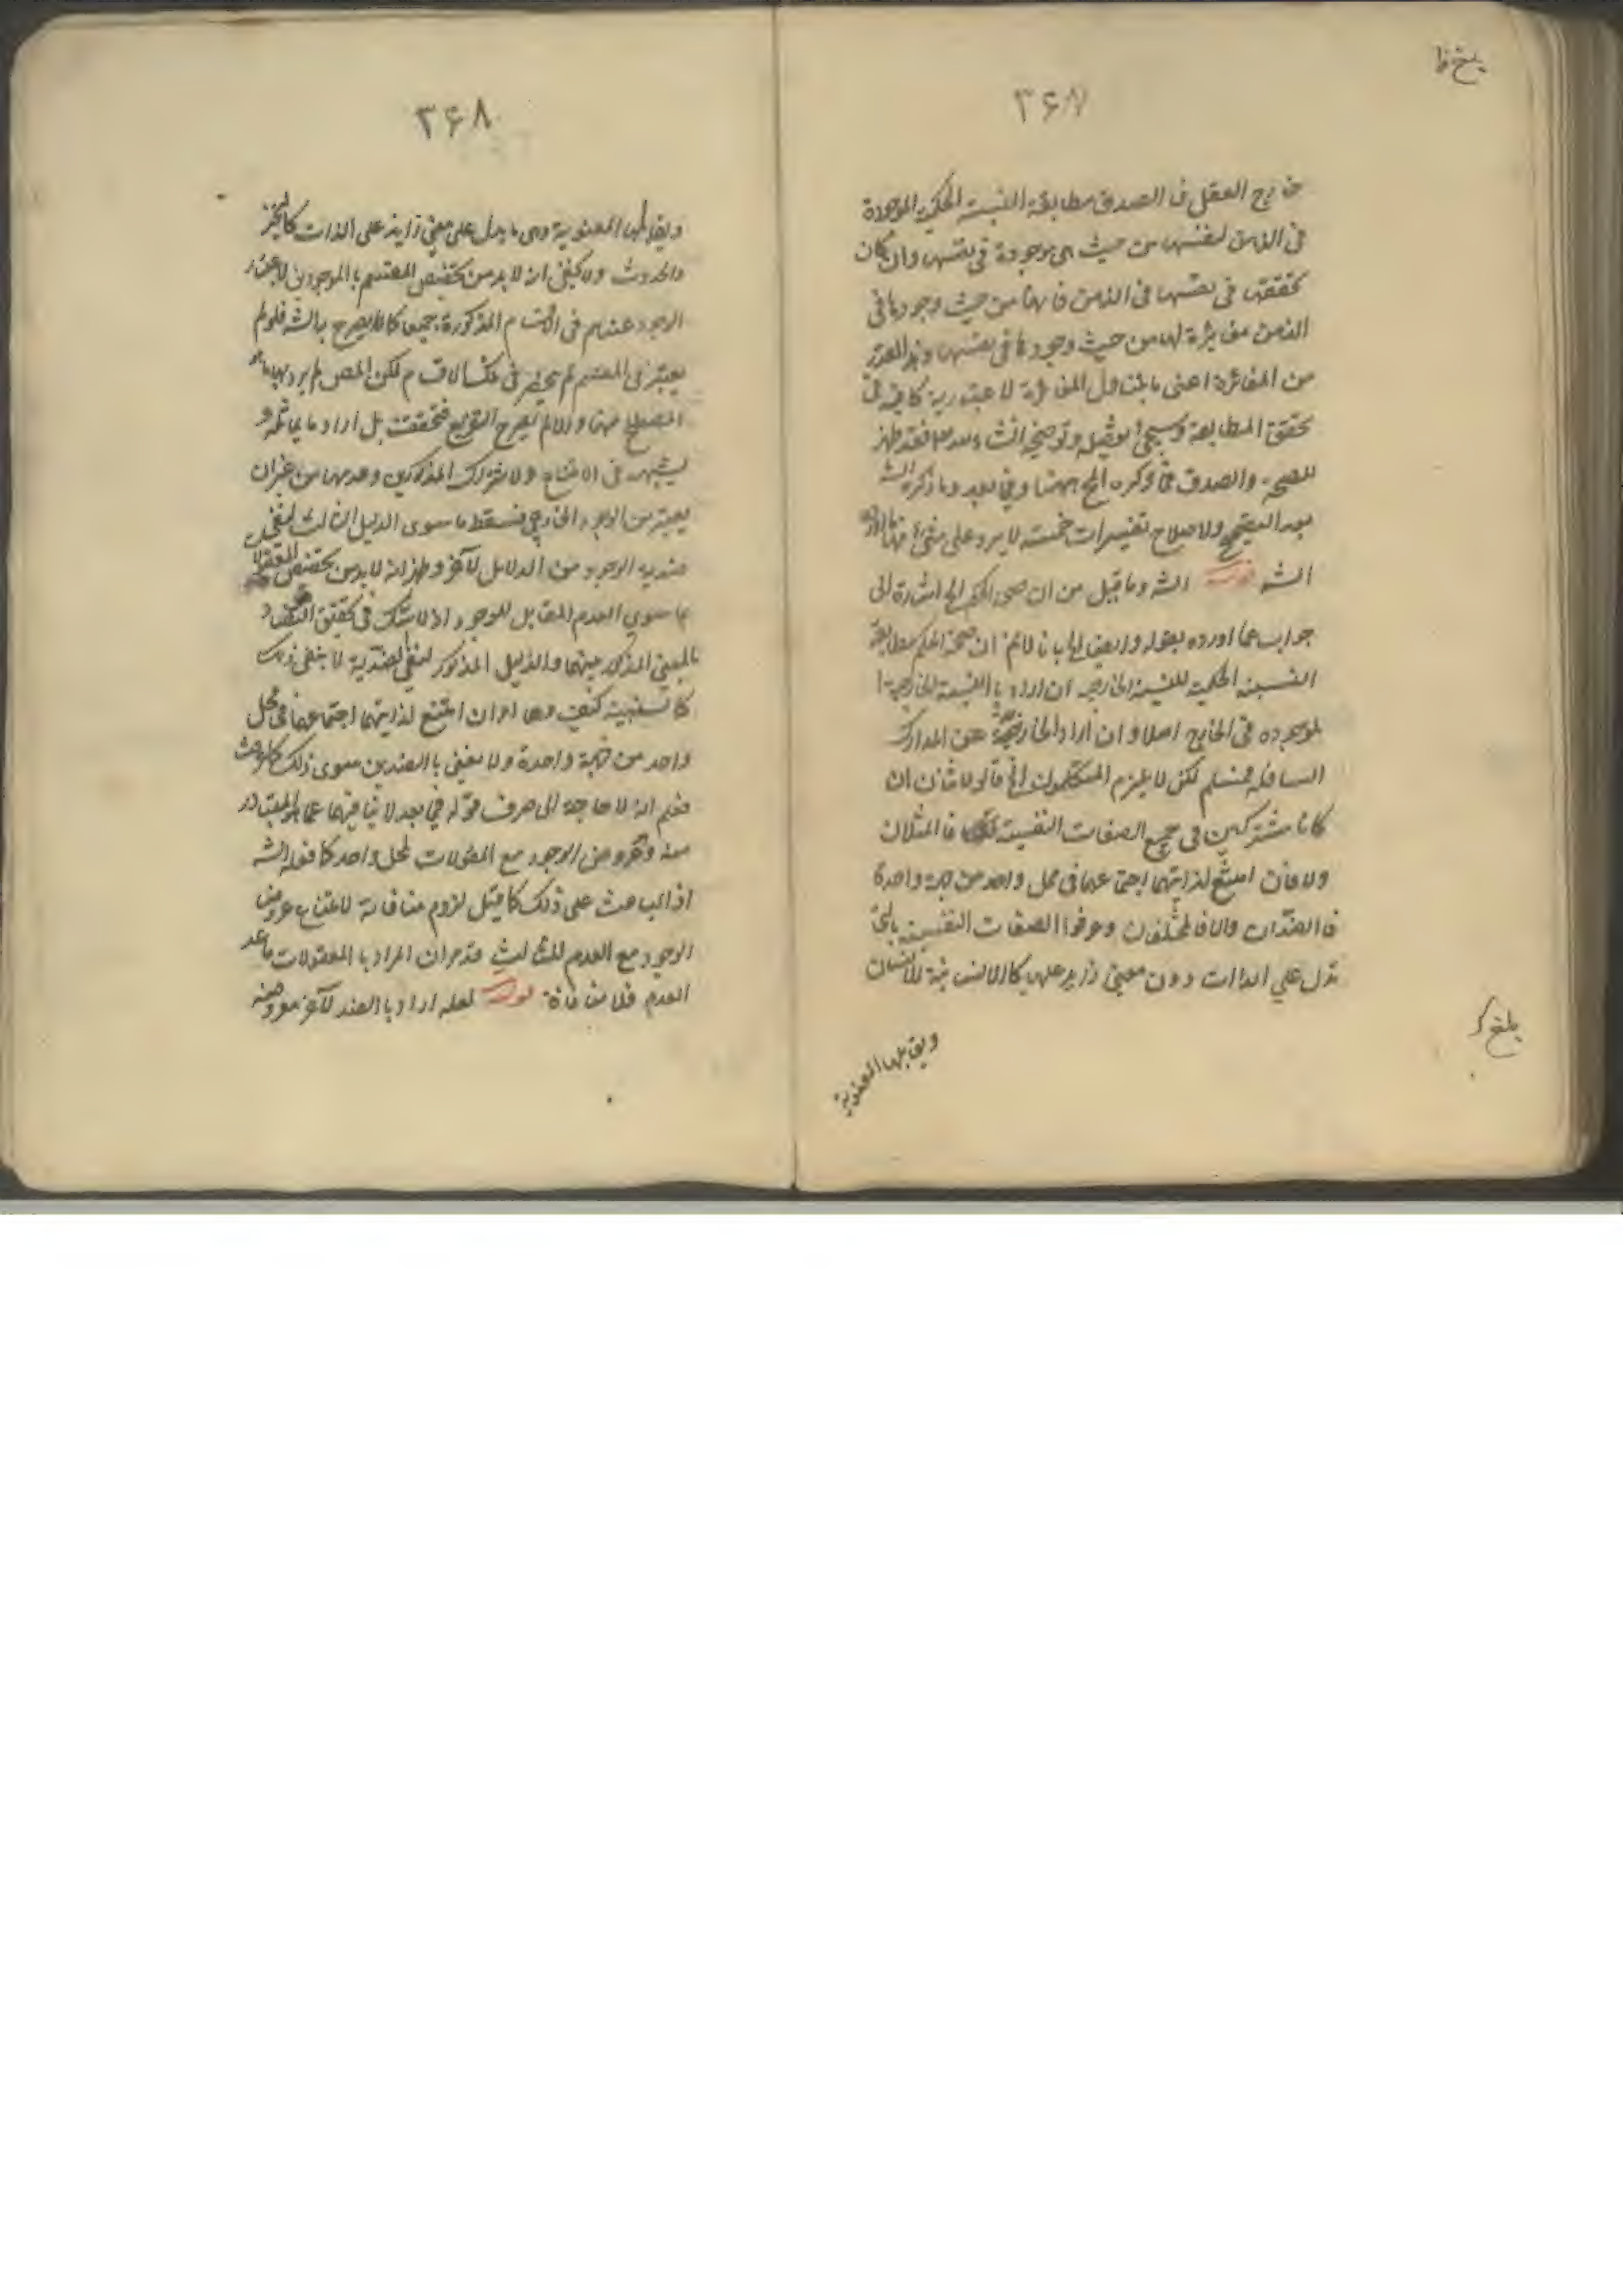 ۳۶۷
خارج العقل فالصدق مطابقة النسبة الحكمية الموجودة
فى الذهن لنفسها من حيث هى موجودة فى نفسها وان كان
تحققها فى نفسها فى الذهن فانها من حيث وجودها فى
الذهن مغايرة لها من حيث وجودها فى نفسها وهذا القدر
من المغائرة اعنى ما يتناول المغائرة الاعتبارية كافية فى
تحقق المطابقة وسيجئ تفصيل وتوضيح انشاء الله فقد ظهر
للصحة والصدق فيما ذكره المح ههنا وفى بعد وما ذكره الشه
بعد التصحيح والاصلاح تفسيرات خمسة لا يرد على شئ منها
الشه قوله الشه وما قيل من ان صحة الحكم الخ اشارة الى
جواب عما اورده بقوله وايضا الخ بانا لانم ان صحة الحكم مطابقة
النسبة الحكمية للنسبة الخارجية ان اراد بالنسبة الخارجية
الموجوده فى الخارج اصلا وان اراد الخارجة عن المدارك
السافلة فمسلم لكن لا يلزم المتكلمون الخ قالوا الاثنان ان
كانا مشتركين فى جميع الصفات النفسية فالمثلان
والا فان امتنع لذاتيهما اجتماعهما فى محل واحد من جهة واحدة
فالضدان والا فالمختلفان وعرفوا الصفات النفسية بالتى
تدل على الذات دون معنى زايد عليها كالانسانية للانسان
ويقابلها المعنوية
بلغ
۳۶۸
ويقابلها المعنوية وهى ما يدل على معنى زايد على الذات كالتحيز
والحدوث ولا يخفى انه لابد من تخصيص المقسم بالموجودين لاعتبار
الوجود عندهم فى الاقسام المذكورة جميعا كما يصرح به الشه فلو لم
يعتبر فى المقسم لم ينحصر فى تلك الاقسام لكن المص لم يرد بها ما هو
المصطلح ههنا والا لم يصح التفريع فتحققت بل اراد ما يماثله و
يشبهه فى الامتناع والاشتراك المذكورين وعدمهما من غير ان
يعتبر من الوجود الخارجى فسقط ما سوى الدليل الثالث لنفى
ضدية الوجود من الدلايل الآخر وظهر انه لابد من تخصيص المعقولات
بما سوى العدم المقابل للوجود اذ لا شك فى تحقق التضاد
بالمعنى المذكور بينهما والدليل المذكور لنفى الضدية لا ينفى ذلك
كالسنبية كيف وهما امران امتنع لذاتيهما اجتماعهما فى محل
واحد من جهة واحدة ولا معنى بالضدين سوى ذلك
فعلم انه لا حاجة الى صرف قوله فى بعد لا ينافيهما عما هو المتبادر
منه وهو عروض الوجود مع المعقولات لمحل واحد كما فعله الشه
اذ الباعث على ذلك كما قيل لزوم منافاته لامتناع عروض
الوجود مع العدم للثالث قد مر ان المراد بالمعقولات ما عد
العدم فلا منافاة قوله لعله اراد بالضد الآخر معروضه